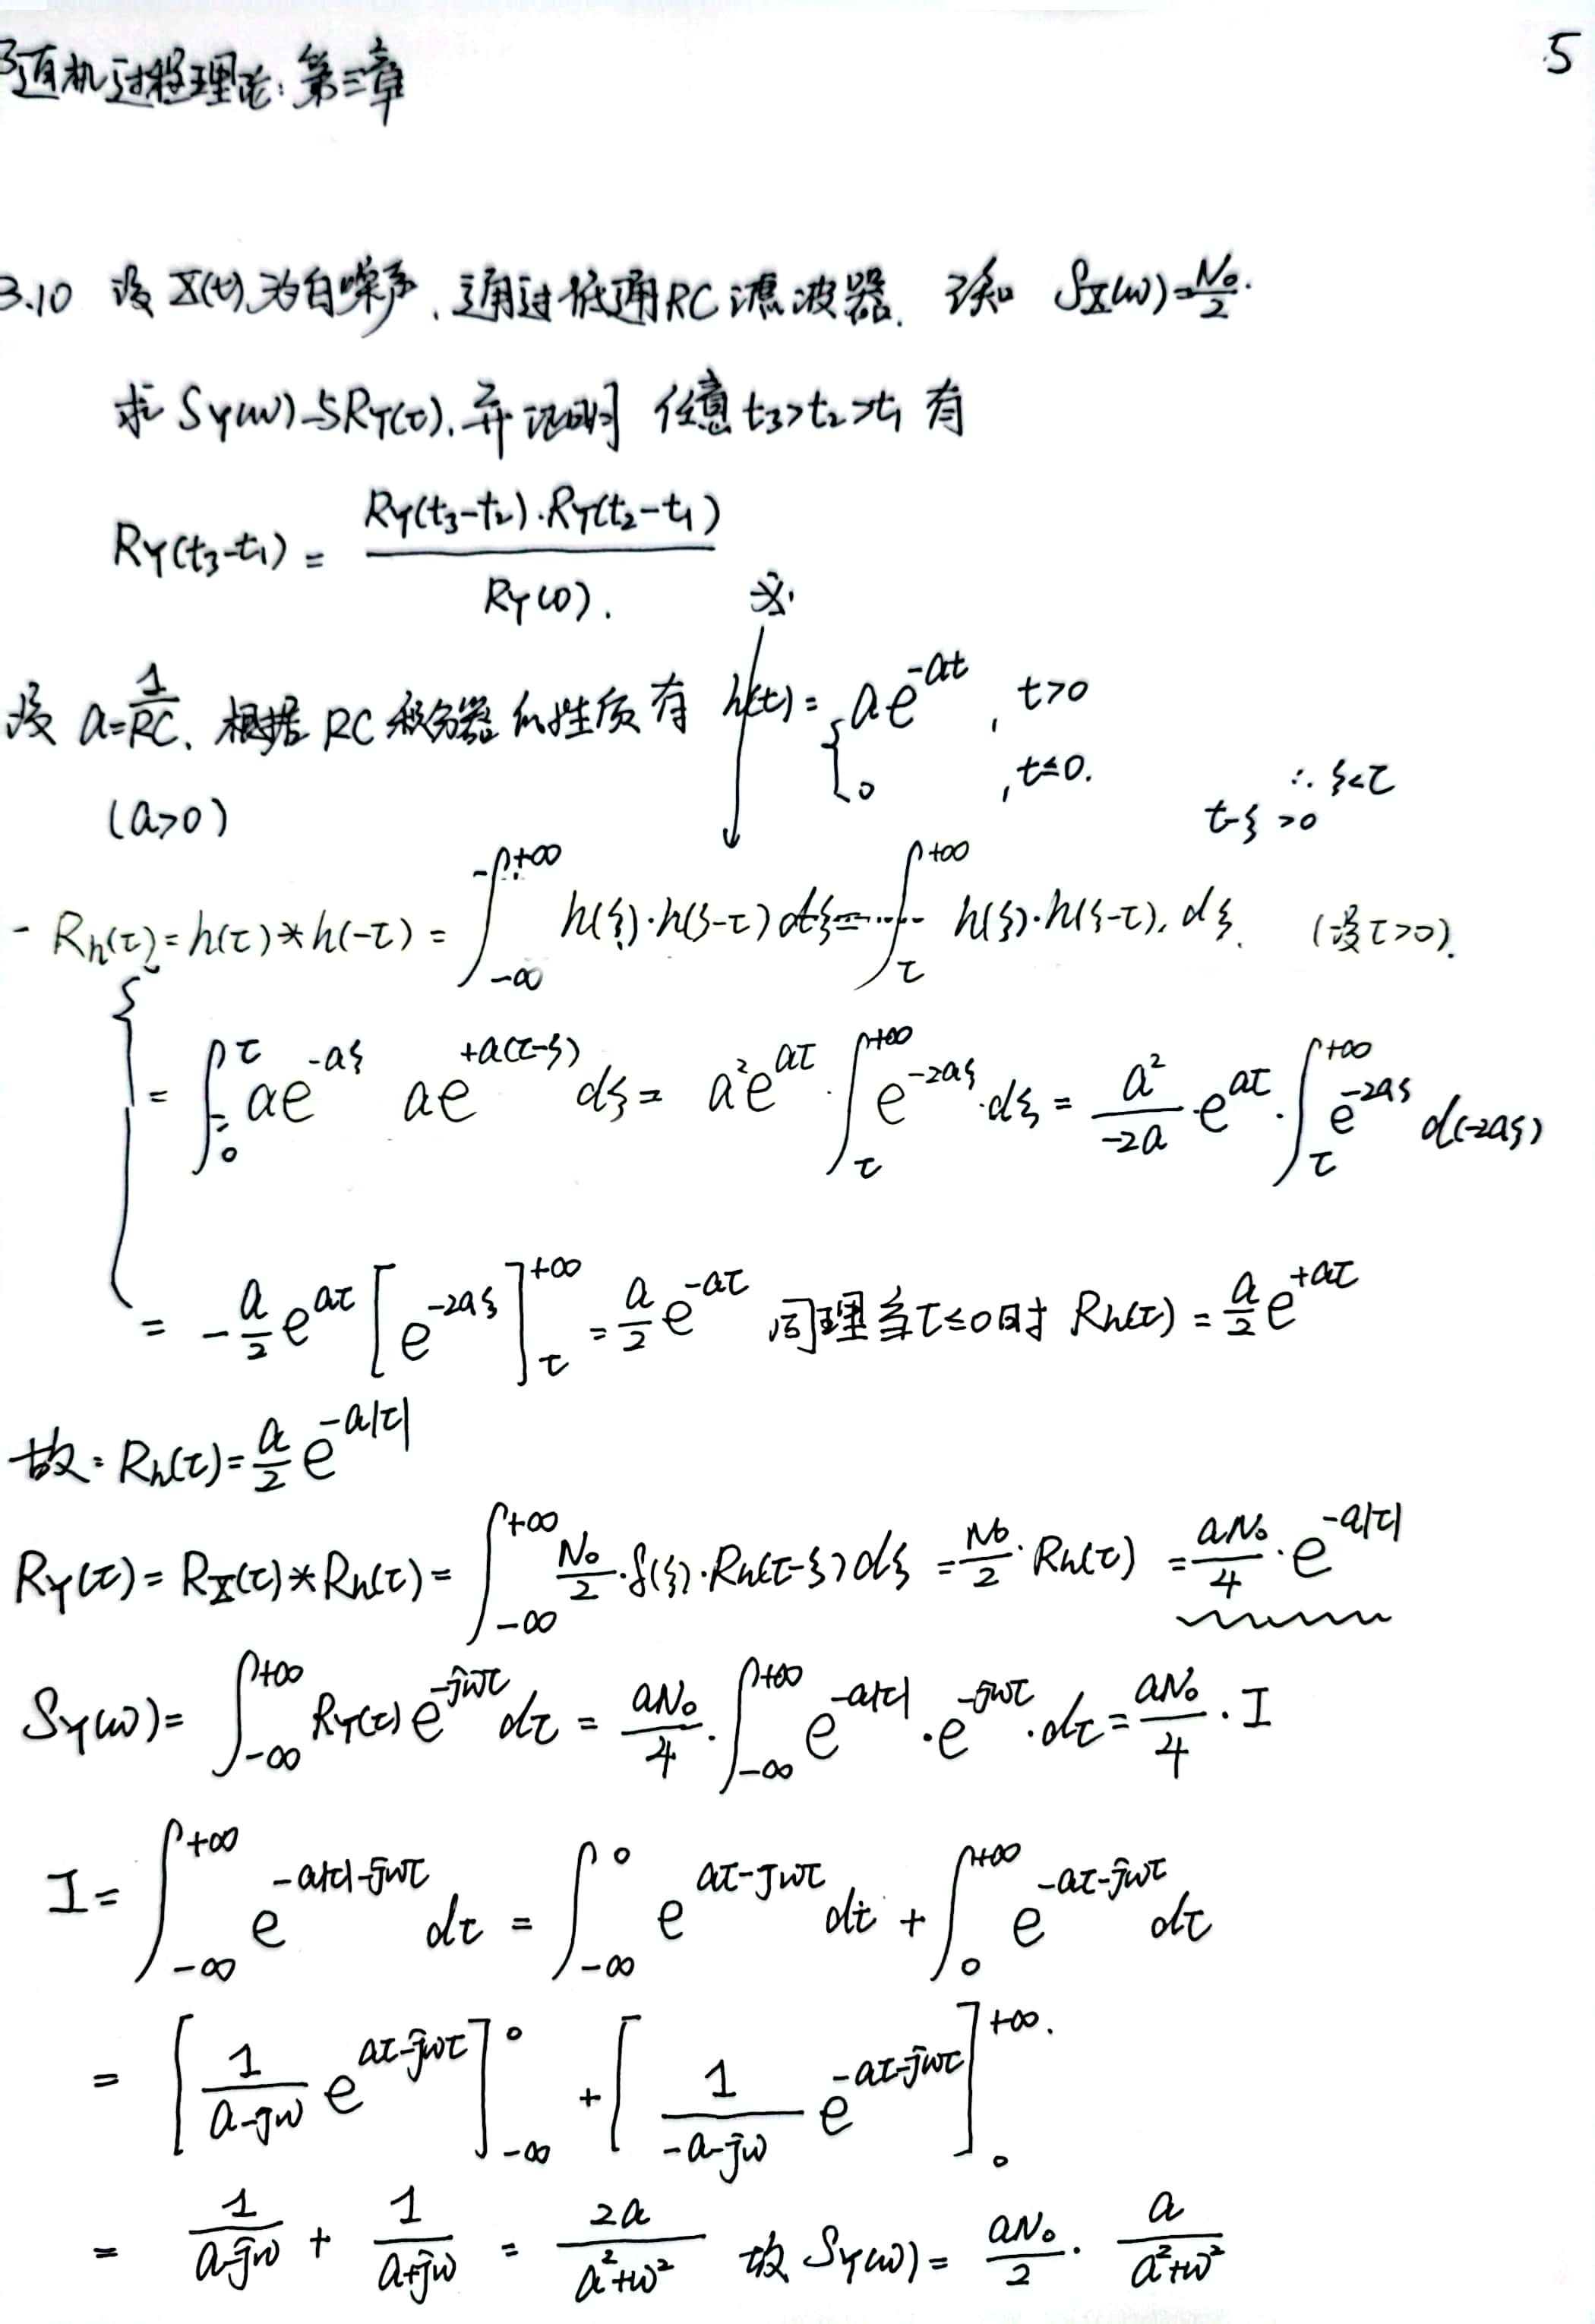 随机过程理论:第三章
5
3.10 设 X(t) 为白噪声,通过低通RC滤波器. S_X(ω)=N₀/2.
求 S_Y(ω)与R_Y(τ),并证明 任意 t₃>t₂>t₁ 有
R_Y(t₃-t₁) = R_Y(t₃-t₂)·R_Y(t₂-t₁) / R_Y(0).
设 a=1/RC, 根据 RC 积分器的性质有 h(t)= { ae^{-at}, t>0
0, t≤0.
(a>0)
∴ ξ<τ
t-ξ>0
R_h(τ)=h(τ)*h(-τ) = ∫_{-∞}^{+∞} h(ξ)·h(ξ-τ)dξ = ∫_τ^{+∞} h(ξ)·h(ξ-τ), dξ. (设τ>0).
= ∫_0^τ ae^{-aξ} ae^{+a(τ-ξ)} dξ = a²e^{aτ}·∫_τ^{+∞} e^{-2aξ}·dξ = a²/-2a ·e^{aτ}·∫_τ^{+∞} e^{-2aξ} d(-2aξ)
= -a/2 e^{aτ} [e^{-2aξ}]_τ^{+∞} = a/2 e^{-aτ} 同理当τ≤0时 R_h(τ) = a/2 e^{+aτ}
故: R_h(τ)= a/2 e^{-a|τ|}
R_Y(τ)= R_X(τ)*R_h(τ)= ∫_{-∞}^{+∞} N₀/2·δ(ξ)·R_h(τ-ξ)dξ = N₀/2·R_h(τ) = aN₀/4·e^{-a|τ|}
S_Y(ω)= ∫_{-∞}^{+∞} R_Y(τ)e^{-jωτ}dτ = aN₀/4·∫_{-∞}^{+∞} e^{-a|τ|}·e^{-jωτ}·dτ = aN₀/4·I
I= ∫_{-∞}^{+∞} e^{-a|τ|-jωτ} dτ = ∫_{-∞}^0 e^{aτ-jωτ}dτ + ∫_0^{+∞} e^{-aτ-jωτ}dτ
= [1/(a-jω) e^{aτ-jωτ}]_{-∞}^0 + [1/(-a-jω) e^{-aτ-jωτ}]_0^{+∞}.
= 1/(a-jω) + 1/(a+jω) = 2a/(a²+ω²) 故 S_Y(ω)= aN₀/2·a/(a²+ω²)